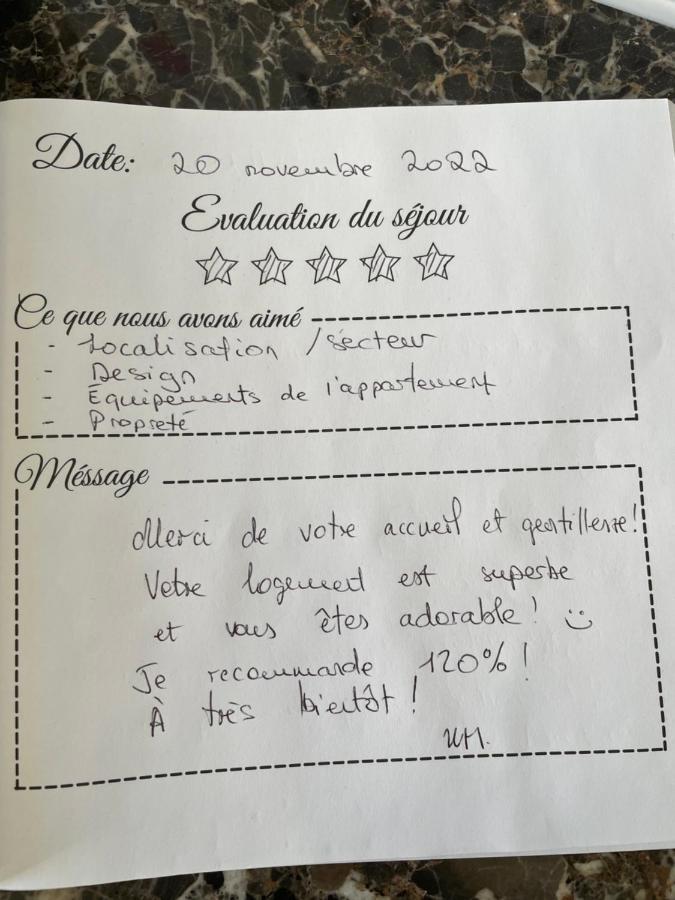 Date: 20 novembre 2022
Evaluation du séjour
Ce que nous avons aimé
- Localisation / secteur
- Design
- Équipements de l'appartement
- Propreté
Méssage
Merci de votre accueil et gentillesse!
Votre logement est superbe
et vous êtes adorable! :)
Je recommande 120%!
À très bientôt!